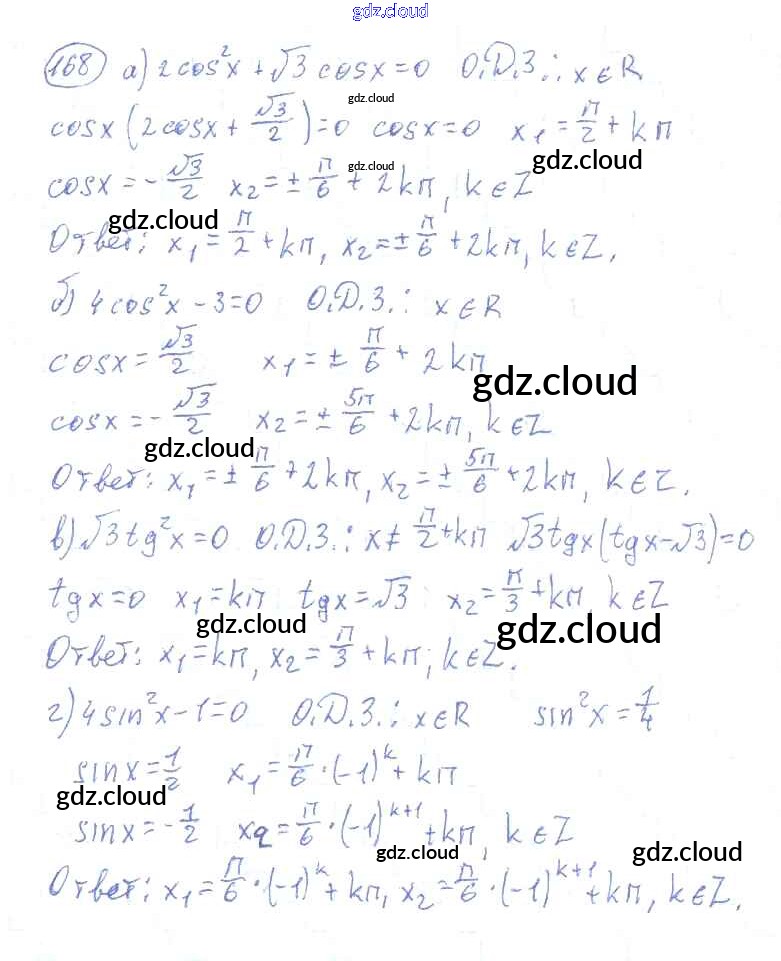 gdz.cloud gdz.cloud
168 а) 2cos²x + √3 cosx = 0 О.Д.З.: x ∈ R
gdz.cloud
cosx(2cosx + √3/2) = 0 cosx = 0 x₁ = π/2 + kπ
gdz.cloud gdz.cloud
cosx = -√3/2 x₂ = ± π/6 + 2kπ, k ∈ Z
gdz.cloud
Ответ: x₁ = π/2 + kπ, x₂ = ± π/6 + 2kπ, k ∈ Z.
б) 4cos²x - 3 = 0 О.Д.З.: x ∈ R
cosx = √3/2 x₁ = ± π/6 + 2kπ
gdz.cloud
cosx = -√3/2 x₂ = ± 5π/6 + 2kπ, k ∈ Z
gdz.cloud
Ответ: x₁ = ± π/6 + 2kπ, x₂ = ± 5π/6 + 2kπ, k ∈ Z.
в) √3tg²x = 0 О.Д.З.: x ≠ π/2 + kπ √3tgx(tgx - √3) = 0
tgx = 0 x₁ = kπ tgx = √3 x₂ = π/3 + kπ, k ∈ Z
gdz.cloud gdz.cloud
Ответ: x₁ = kπ, x₂ = π/3 + kπ; k ∈ Z.
г) 4sin²x - 1 = 0 О.Д.З.: x ∈ R sin²x = 1/4
sinx = 1/2 x₁ = π/6 · (-1)^k + kπ
gdz.cloud
sinx = -1/2 x₂ = π/6 · (-1)^(k+1) + kπ, k ∈ Z
gdz.cloud gdz.cloud
Ответ: x₁ = π/6 · (-1)^k + kπ, x₂ = π/6 · (-1)^(k+1) + kπ, k ∈ Z.